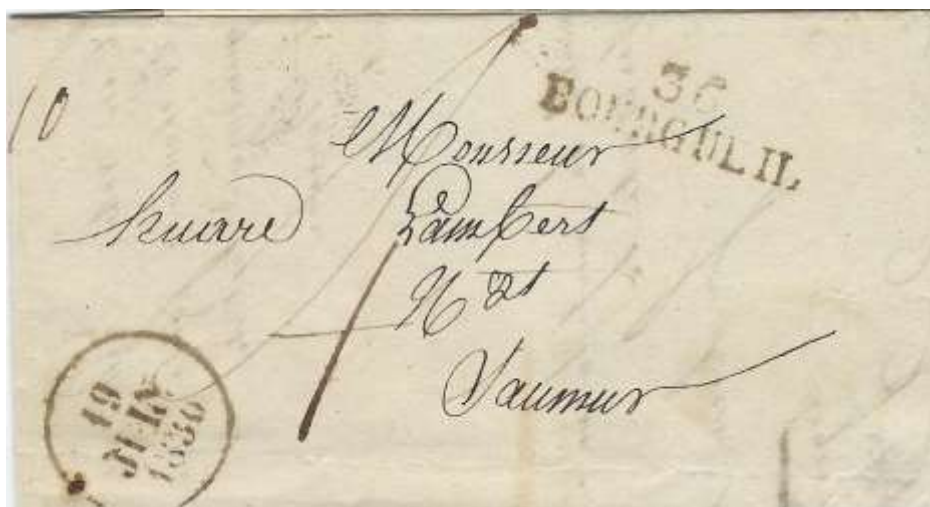 10
36
BOURGUEIL
Monsieur
Lambert
Nt
Saumur
19
JUIN
1830